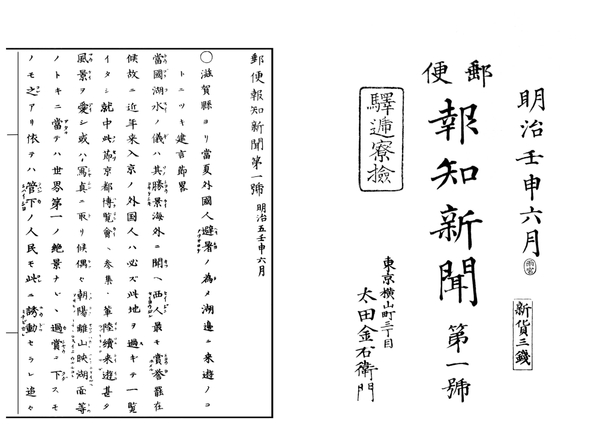 明治壬申六月
新貨三錢
郵便
報知新聞
第一號
驛遞寮撿
東京横山町三丁目
太田金右衛門
郵便報知新聞第一號 明治五壬申六月
〇滋賀縣ヨリ當夏外國人避暑ノ為メ湖邊ニ来遊ノコ
トニツキ建言節畧
當國湖水ノ儀ハ其勝景海外ニ聞ヘ西人最モ賞誉罷在
候故ニ近年来入京ノ外国人ハ必ズ此地ヲ過キテ一覧
イタシ就中此節京都博覧會ヘ参集ノ輩陸續来遊甚タ
風景ヲ愛シ或ハ寫真ニ取リ候偶々朝陽離山映湖面等
ノトキニ當テハ世界第一ノ絶景ナド、過賞ニ下スモ
ノモ之アリ依テハ管下ノ人民モ此ニ誘動セラレ追々